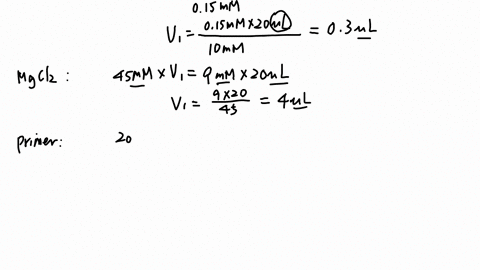 0.15mM
V₁ = 0.15mM×20uL / 10mM = 0.3uL
MgCl₂: 45mM × V₁ = 9mM × 20uL
V₁ = 9×20 / 45 = 4uL
primer: 20